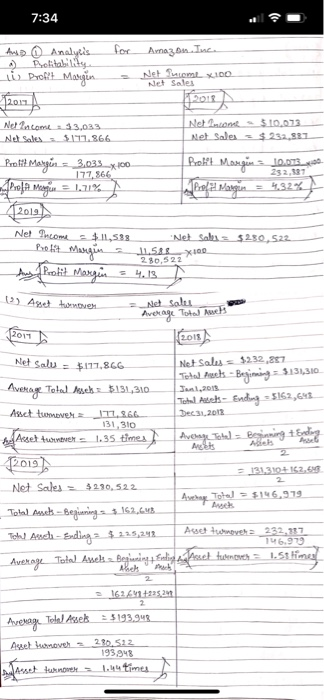 7:34
Ans ① Analysis for Amazon. Inc.
a) Profitability.
(i) Profit Margin = Net Income x100
Net Sales
2017
Net Income = $3,033
Net Sales = $177,866
Profit Margin = 3,033 x100
177,866
Profit Margin = 1.71%
2018
Net Income = $10,073
Net Sales = $232,887
Profit Margin = 10,073 x100
232,887
Profit Margin = 4.32%
2019
Net Income = $11,588 Net Sales = $280,522
Profit Margin = 11,588 x100
280,522
Ans Profit Margin = 4.13
(2) Asset turnover = Net Sales
Average Total Assets
2017
Net Sales = $177,866
Average Total Assets = $131,310
Asset turnover = 177,866
131,310
Ans Asset turnover = 1.35 times
2018
Net Sales = $232,887
Total Assets - Beginning = $131,310
Jan 1, 2018
Total Assets - Ending = $162,648
Dec 31, 2018
Average Total = Beginning + Ending
Assets Assets Assets
2
= 131,310+162,648
2
Average Total = $146,979
Assets
Asset turnover = 232,887
146,979
Ans Asset turnover = 1.58 times
2019
Net Sales = $280,522
Total Assets - Beginning = $162,648
Total Assets - Ending = $225,248
Average Total Assets = Beginning + Ending
Assets Assets
2
= 162,648+225,248
2
Average Total Assets = $193,948
Asset turnover = 280,522
193,948
Ans Asset turnover = 1.44 times